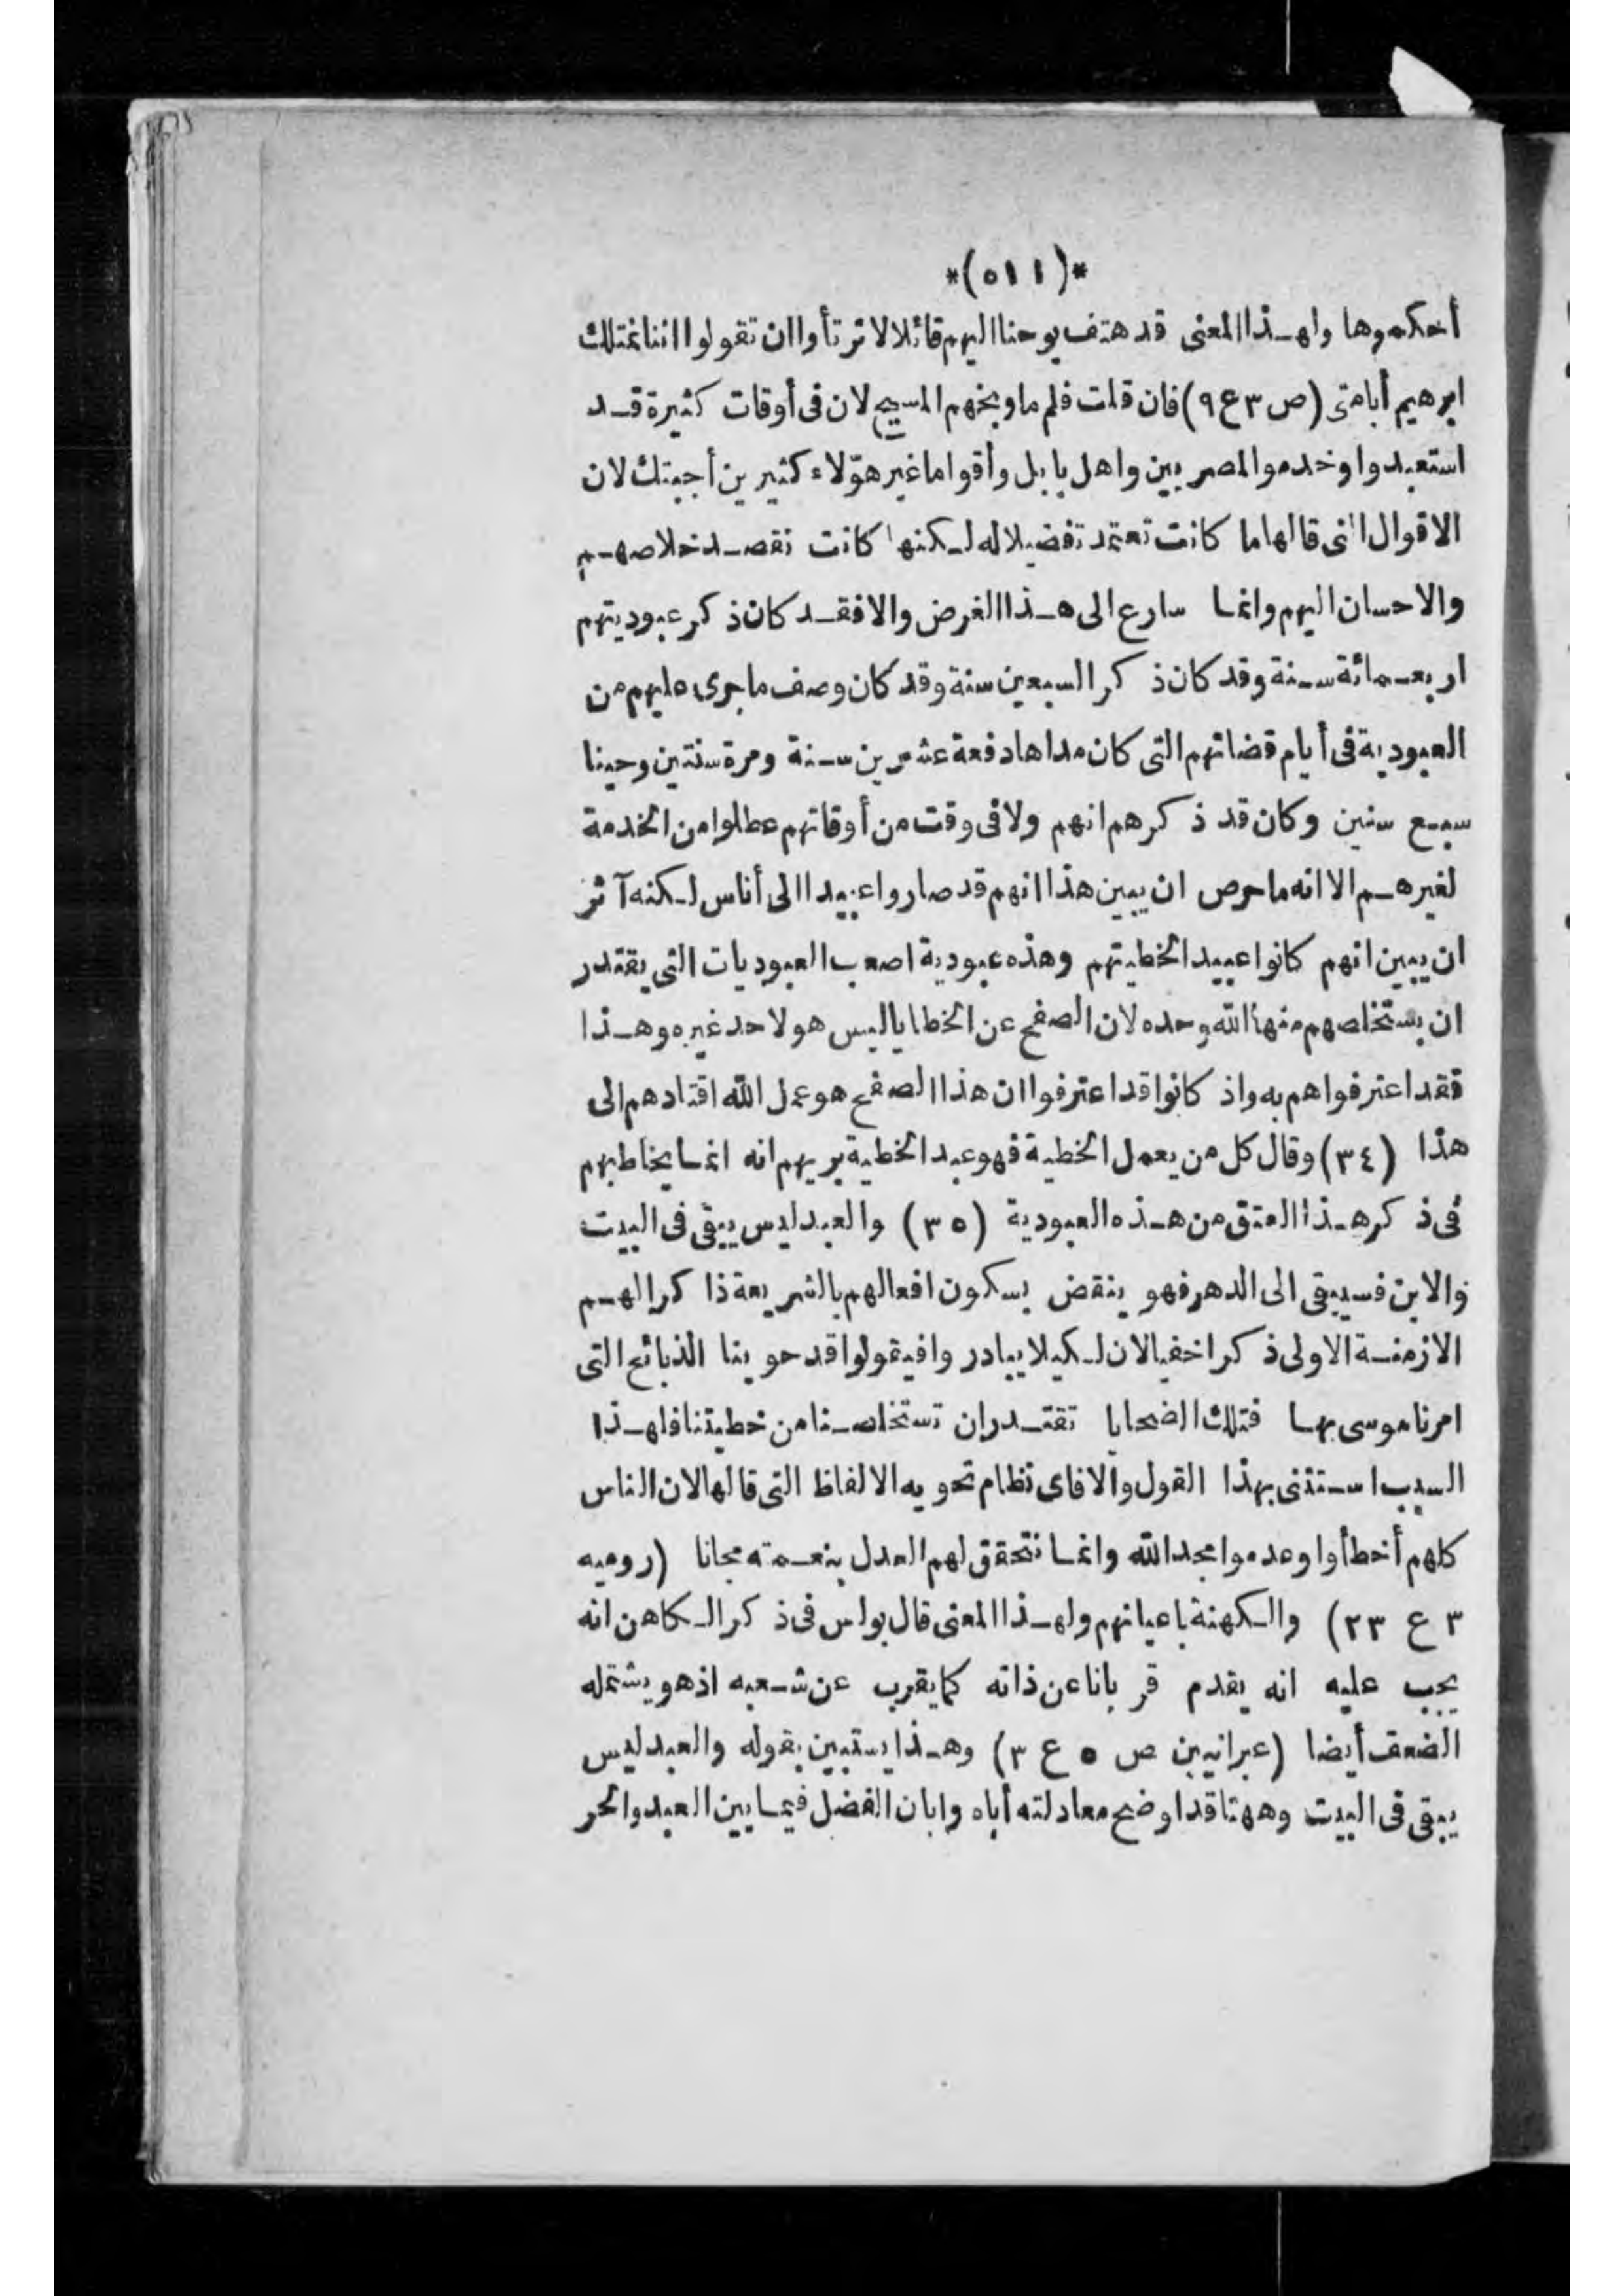 *(٥١١)*
أحكموها ولهذا المعنى قد هتف يوحنا اليهم قائلا لا ترتأوا ان تقولوا اننا نمتلك
ابرهيم أبا متى (ص ٣ ع ٩) فان قلت فلم ما وبخهم المسيح لان فى أوقات كثيرة قد
استعبدوا وخدموا المصريين واهل بابل وأقواما غير هؤلاء كثيرين أجبتك لان
الاقوال التى قالها ما كانت تعتمد تفضيلا له لكنها كانت تقصد خلاصهم
والاحسان اليهم وانما سارع الى هذا الغرض والا فقد كان ذكر عبوديتهم
اربعمائة سنة وقد كان ذكر السبعين سنة وقد كان وصف ما جرى عليهم من
العبودية فى أيام قضاتهم التى كان مداها دفعة عشرين سنة ومرة سنتين وحينا
سبع سنين وكان قد ذكرهم انهم ولا فى وقت من أوقاتهم عطلوا من الخدمة
لغيرهم الا انه ما حرص ان يبين هذا انهم قد صاروا عبيدا الى أناس لكنه آثر
ان يبين انهم كانوا عبيدا لخطيتهم وهذه عبودية اصعب العبوديات التى يقتدر
ان يستخلصهم منها الله وحده لان الصفح عن الخطايا ليس هو لاحد غيره وهذا
فقد اعترفوا هم به واذ كانوا قد اعترفوا ان هذا الصفح هو عمل الله اقتادهم الى
هذا (٣٤) وقال كل من يعمل الخطية فهو عبد الخطية يريهم انه انما يخاطبهم
فى ذكر هذا العتق من هذه العبودية (٣٥) والعبد ليس يبقى فى البيت
والابن فسيبقى الى الدهر فهو ينقض بسكون افعالهم بالشريعة ذا كرا لهم
الازمنة الاولى ذكرا خفيا لان لكيلا يبادروا فيقولوا قد حوينا الذبائح التى
امرنا موسى بها فتلك الضحايا تقتدر ان تستخلصنا من خطيتنا فلهذا
السبب استثنى بهذا القول والا فاى نظام تحويه الالفاظ التى قالها لان الناس
كلهم أخطأوا وعدموا مجد الله وانما نتحقق لهم العدل بنعمته مجانا (روميه
٣ ع ٢٣) والكهنة باعيانهم ولهذا المعنى قال بولس فى ذكر الكاهن انه
يجب عليه انه يقدم قربانا عن ذاته كما يقرب عن شعبه اذ هو يشتمله
الضعف أيضا (عبرانيين ص ٥ ع ٣) وهذا يستبين بقوله والعبد ليس
يبقى فى البيت وههنا قد اوضح معادلته أباه وابان الفضل فيما بين العبد والحر